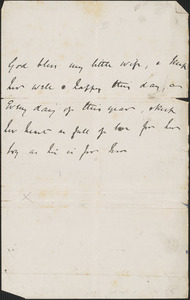 God bless my little wife, & keep
her well & happy this day, as
Every day of this year, & keep
her heart as full of love for her
boy as his is for her